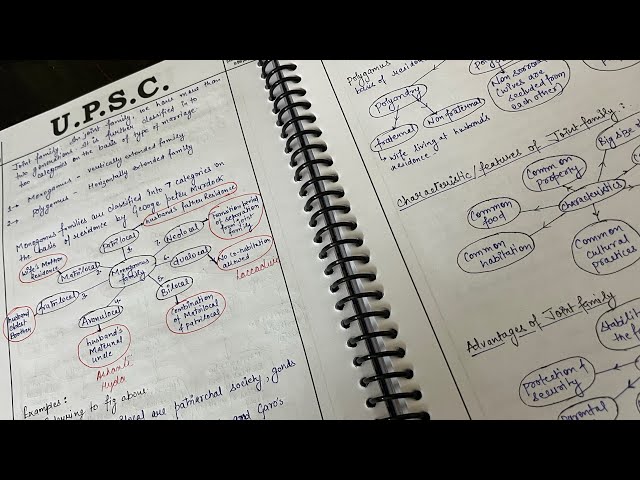 U.P.S.C.
Joint family. In joint family, we have more than
two generations. It is further classified in to
two categories on the basis of type of marriage.
1→ Monogamous - vertically extended family
2→ Polygamous - Horizontally extended family
Monogamous families are classified into 7 categories on
the basis of residence by George peter Murdock
husbands father Residence
Patrilocal
7. Neolocal
Transition period of separation from joint family
Wife's Mother Residence
Matrilocal
Monogamous family
Avalocal
No co-habitation allowed
Laccadive
husband oldest Brother
fratrilocal
Bilocal
Avanulocal
Combination of Matrilocal & patrilocal
husband's Maternal uncle
Ashanti
Hyda
Examples:
to fig above
local are patriarchal society, gonds
and Garo's
polygamous
basis of residence
Polyandry
Non sororal (wives are secluded from each other)
fraternal
Non fraternal
↳ wife living at husbands
residence.
Characteristic/features of Joint family:
Big size
Common property
Common food
Characteristics
Common habitation
Common cultural practices
Advantages of Joint family
Stability
the f
Protection &
security
Parental